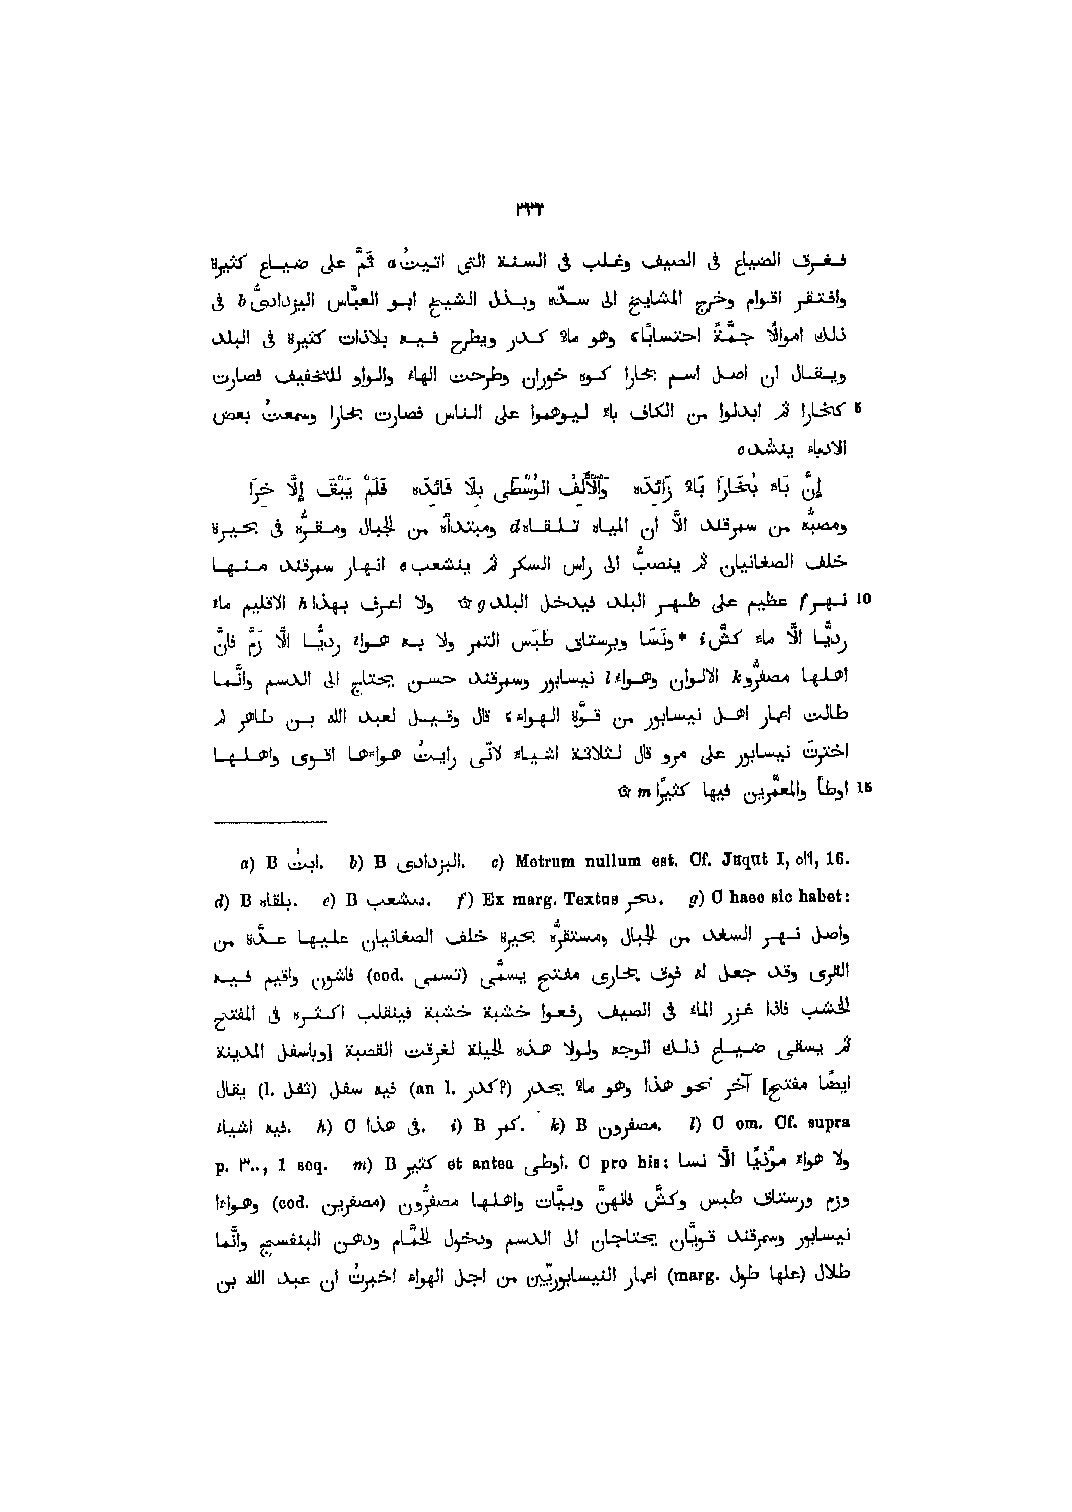 ٣٣٢
فغرق الضياع فى الصيف وغلب فى السنة التى اتيتُ a ثَمَّ على ضياع كثيرة
وافتقر اقوام وخرج المشايخ الى سدّه وبذل الشيخ ابو العبَّاس اليزدادىُّ b فى
ذلك اموالًا جمَّةً احتسابًاء وهو ماءٌ كدر ويطرح فيه بلاذات كثيرة فى البلد
ويقال ان اصل اسم بخارا كوه خوران وطرحت الهاء والواو للتخفيف فصارت
5 كخارا ثم ابدلوا من الكاف باء ليوهموا على الناس فصارت بخارا وسمعتُ بعض
الادباء ينشد c
إنَّ بَاء بُخَارَا بَاءٌ زَائدَه وَٱلْأَلِفُ الوُسْطَى بِلَا فَائدَه فَلَمْ يَبْقَ إِلَّا خِرَا
ومصبُّه من سمرقند الّا ان المياه تلقاه d ومبتدأه من الجبال ومقرُّه فى بحيرة
خلف الصغانيان ثم ينصبُّ الى راس السكر ثم ينشعب e انهار سمرقند منها
10 نهر f عظيم على ظهر البلد فيدخل البلد g ۞ ولا اعرف بهذا h الاقليم ماء
رديًّا الّا ماء كشّ i *ونَسَا وبرستاق طبَس التمر ولا به هواء رديًّا الّا زَمَّ فانَّ
اهلها مصفرُّو k الالوان وهواء l نيسابور وسمرقند حسن يحتاج الى الدسم وانَّما
طالت اعمار اهل نيسابور من قوَّة الهواء، قال وقيل لعبد الله بن طاهر لم
اخترتَ نيسابور على مرو قال لثلاثة اشياء لانّى رايتُ هواءها اقوى واهلها
15 اوطأَ والمعمَّرين فيها كثيرًا m ۞
a) B ابتُ. b) B البزدادى. c) Metrum nullum est. Cf. Jaqut I, ٥١٩, 16.
d) B بلقاه. e) B سشعب. f) Ex marg. Textus بحر. g) C haec sic habet:
واصل نهر السغد من الجبال ومستقرُّه بحيرة خلف الصغانيان عليها عدَّة من
القرى وقد جعل له فوق بخارى مفتح يسمَّى (cod. تسمى) فاشون واقيم فيه
الخشب فاذا غزر الماء فى الصيف رفعوا خشبة خشبة فينقلب اكثره فى المفتح
ثم يسقى ضياع ذلك الوجه ولولا هذه الحيلة لغرقت القصبة [وباسفل المدينة
ايضًا مفتح] آخر نحو هذا وهو ماءٌ يحدر (an l. كدر?) فيه سفل (l. ثفل) يقال
فيه اشياء. h) C فى هذا. i) B كبر. k) B مصفرون. l) C om. Cf. supra
p. ٣٠٠, 1 seq. m) B كثير et antea اوطى. C pro his: ولا هواء مؤذيًا الّا نسا
وزم ورستاق طبس وكشَّ فانهنَّ وبيَّات واهلها مصفرُّون (cod. مصفرين) وهواءا
نيسابور وسمرقند قويَّان يحتاجان الى الدسم ودخول الحمَّام ودهن البنفسج وانَّما
طلال (علها طول marg.) اعمار النيسابوريّين من اجل الهواء اخبرتُ ان عبد الله بن